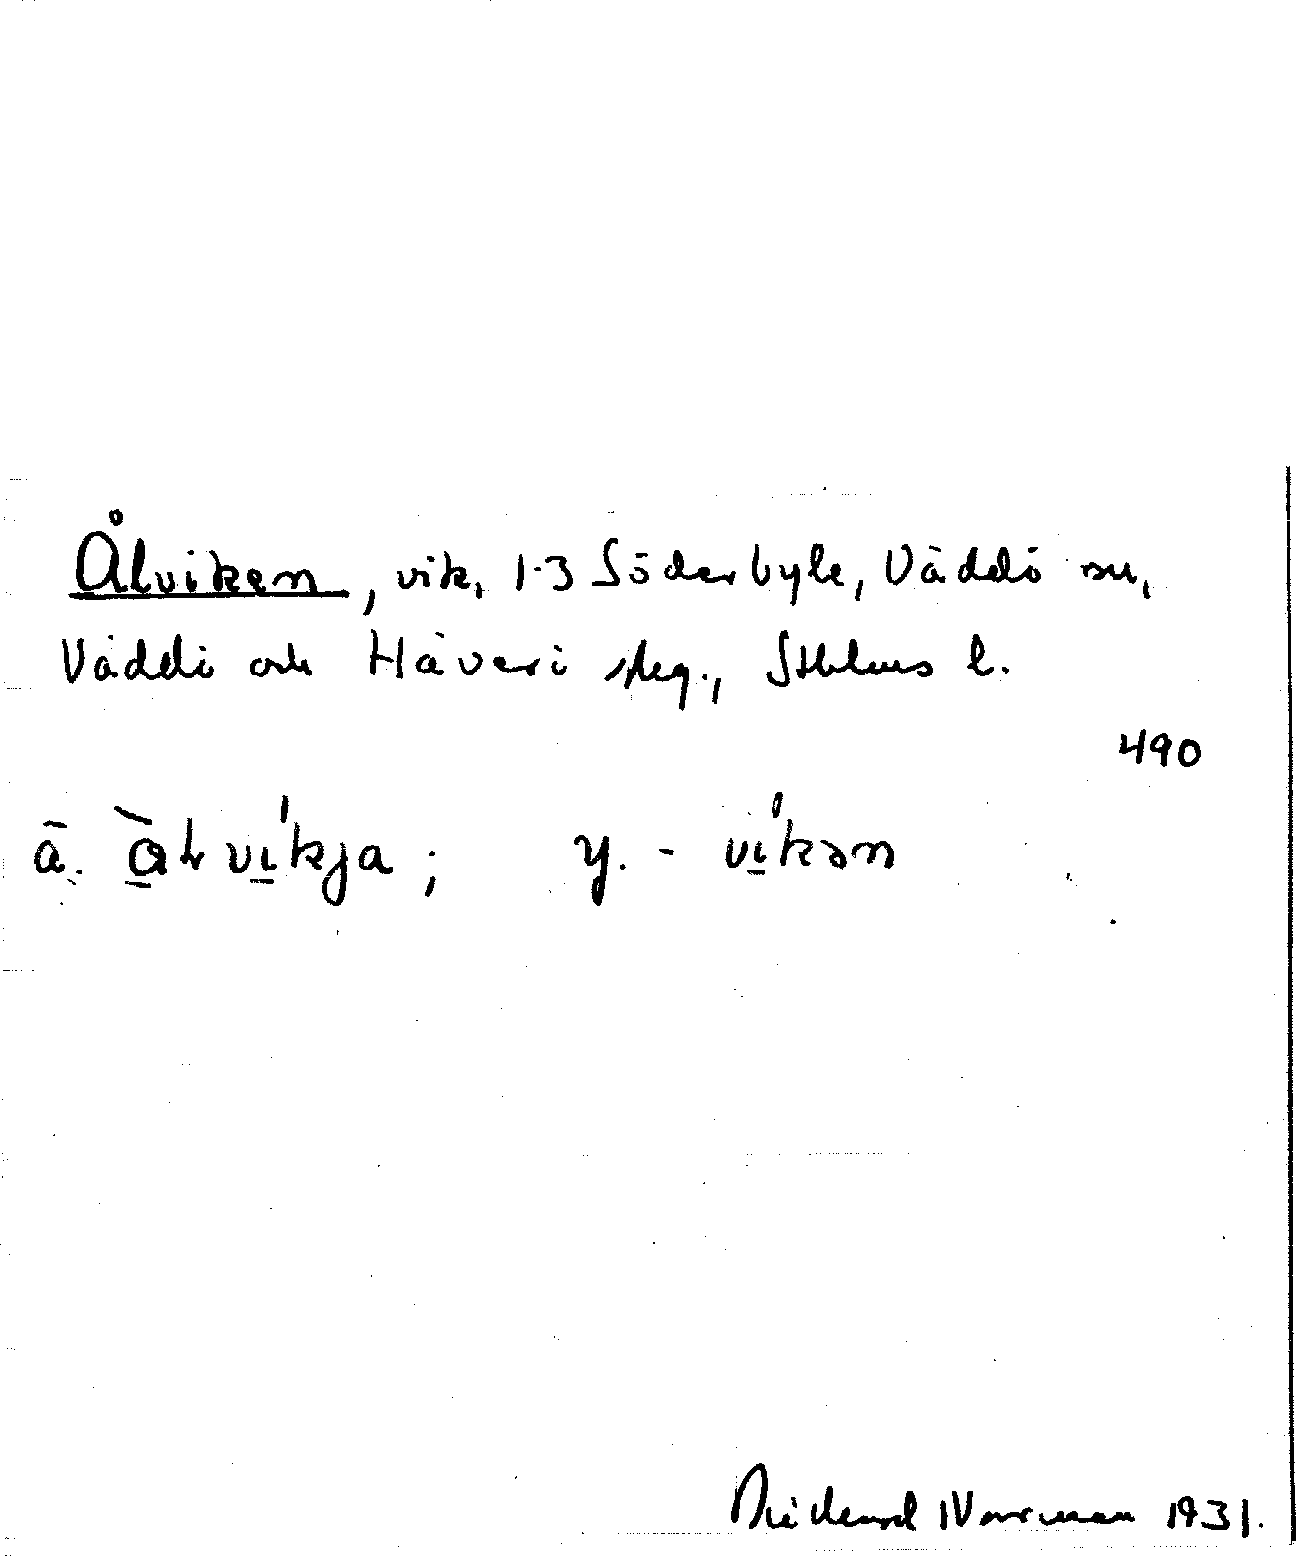 Ålviken, vik, 1-3 Söderbyle, Väddö sn,
Väddö och Häverö skg., Sthlms l.
490
ä. àlvíkja; y. - víkən
Norman 1931.